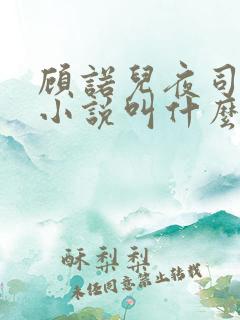 顾諾兒夜司
小説叫什麼
酥梨梨
未經同意禁止轉載